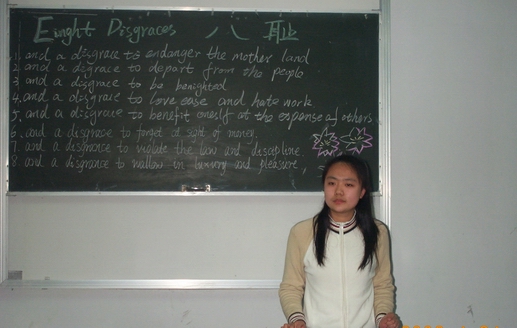 Eught Disgraces 八 耻
1. and a disgrace to endanger the mother land
2 and a disgrace to depart from the people
3 and a disgrace to be benighted
4. and a disgrace to love ease and hate work
5, and a disgrace to benefit oneself at the expense of others
6. and a disgrace to forget at sight of money.
7 and a disgrance to violate the law and discipline
8 and a disgrance to wallow in luxury and pleasure,